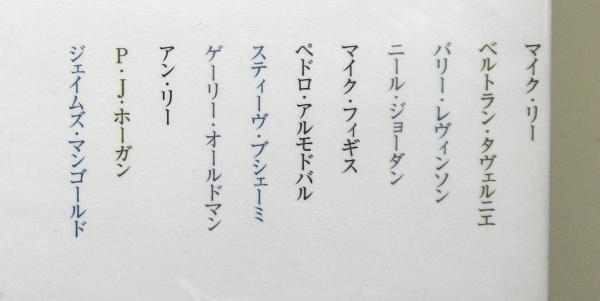 マイク・リー
ベルトラン・タヴェルニエ
バリー・レヴィンソン
ニール・ジョーダン
マイク・フィギス
ペドロ・アルモドバル
スティーヴ・ブシェーミ
ゲーリー・オールドマン
アン・リー
P・J・ホーガン
ジェイムズ・マンゴールド